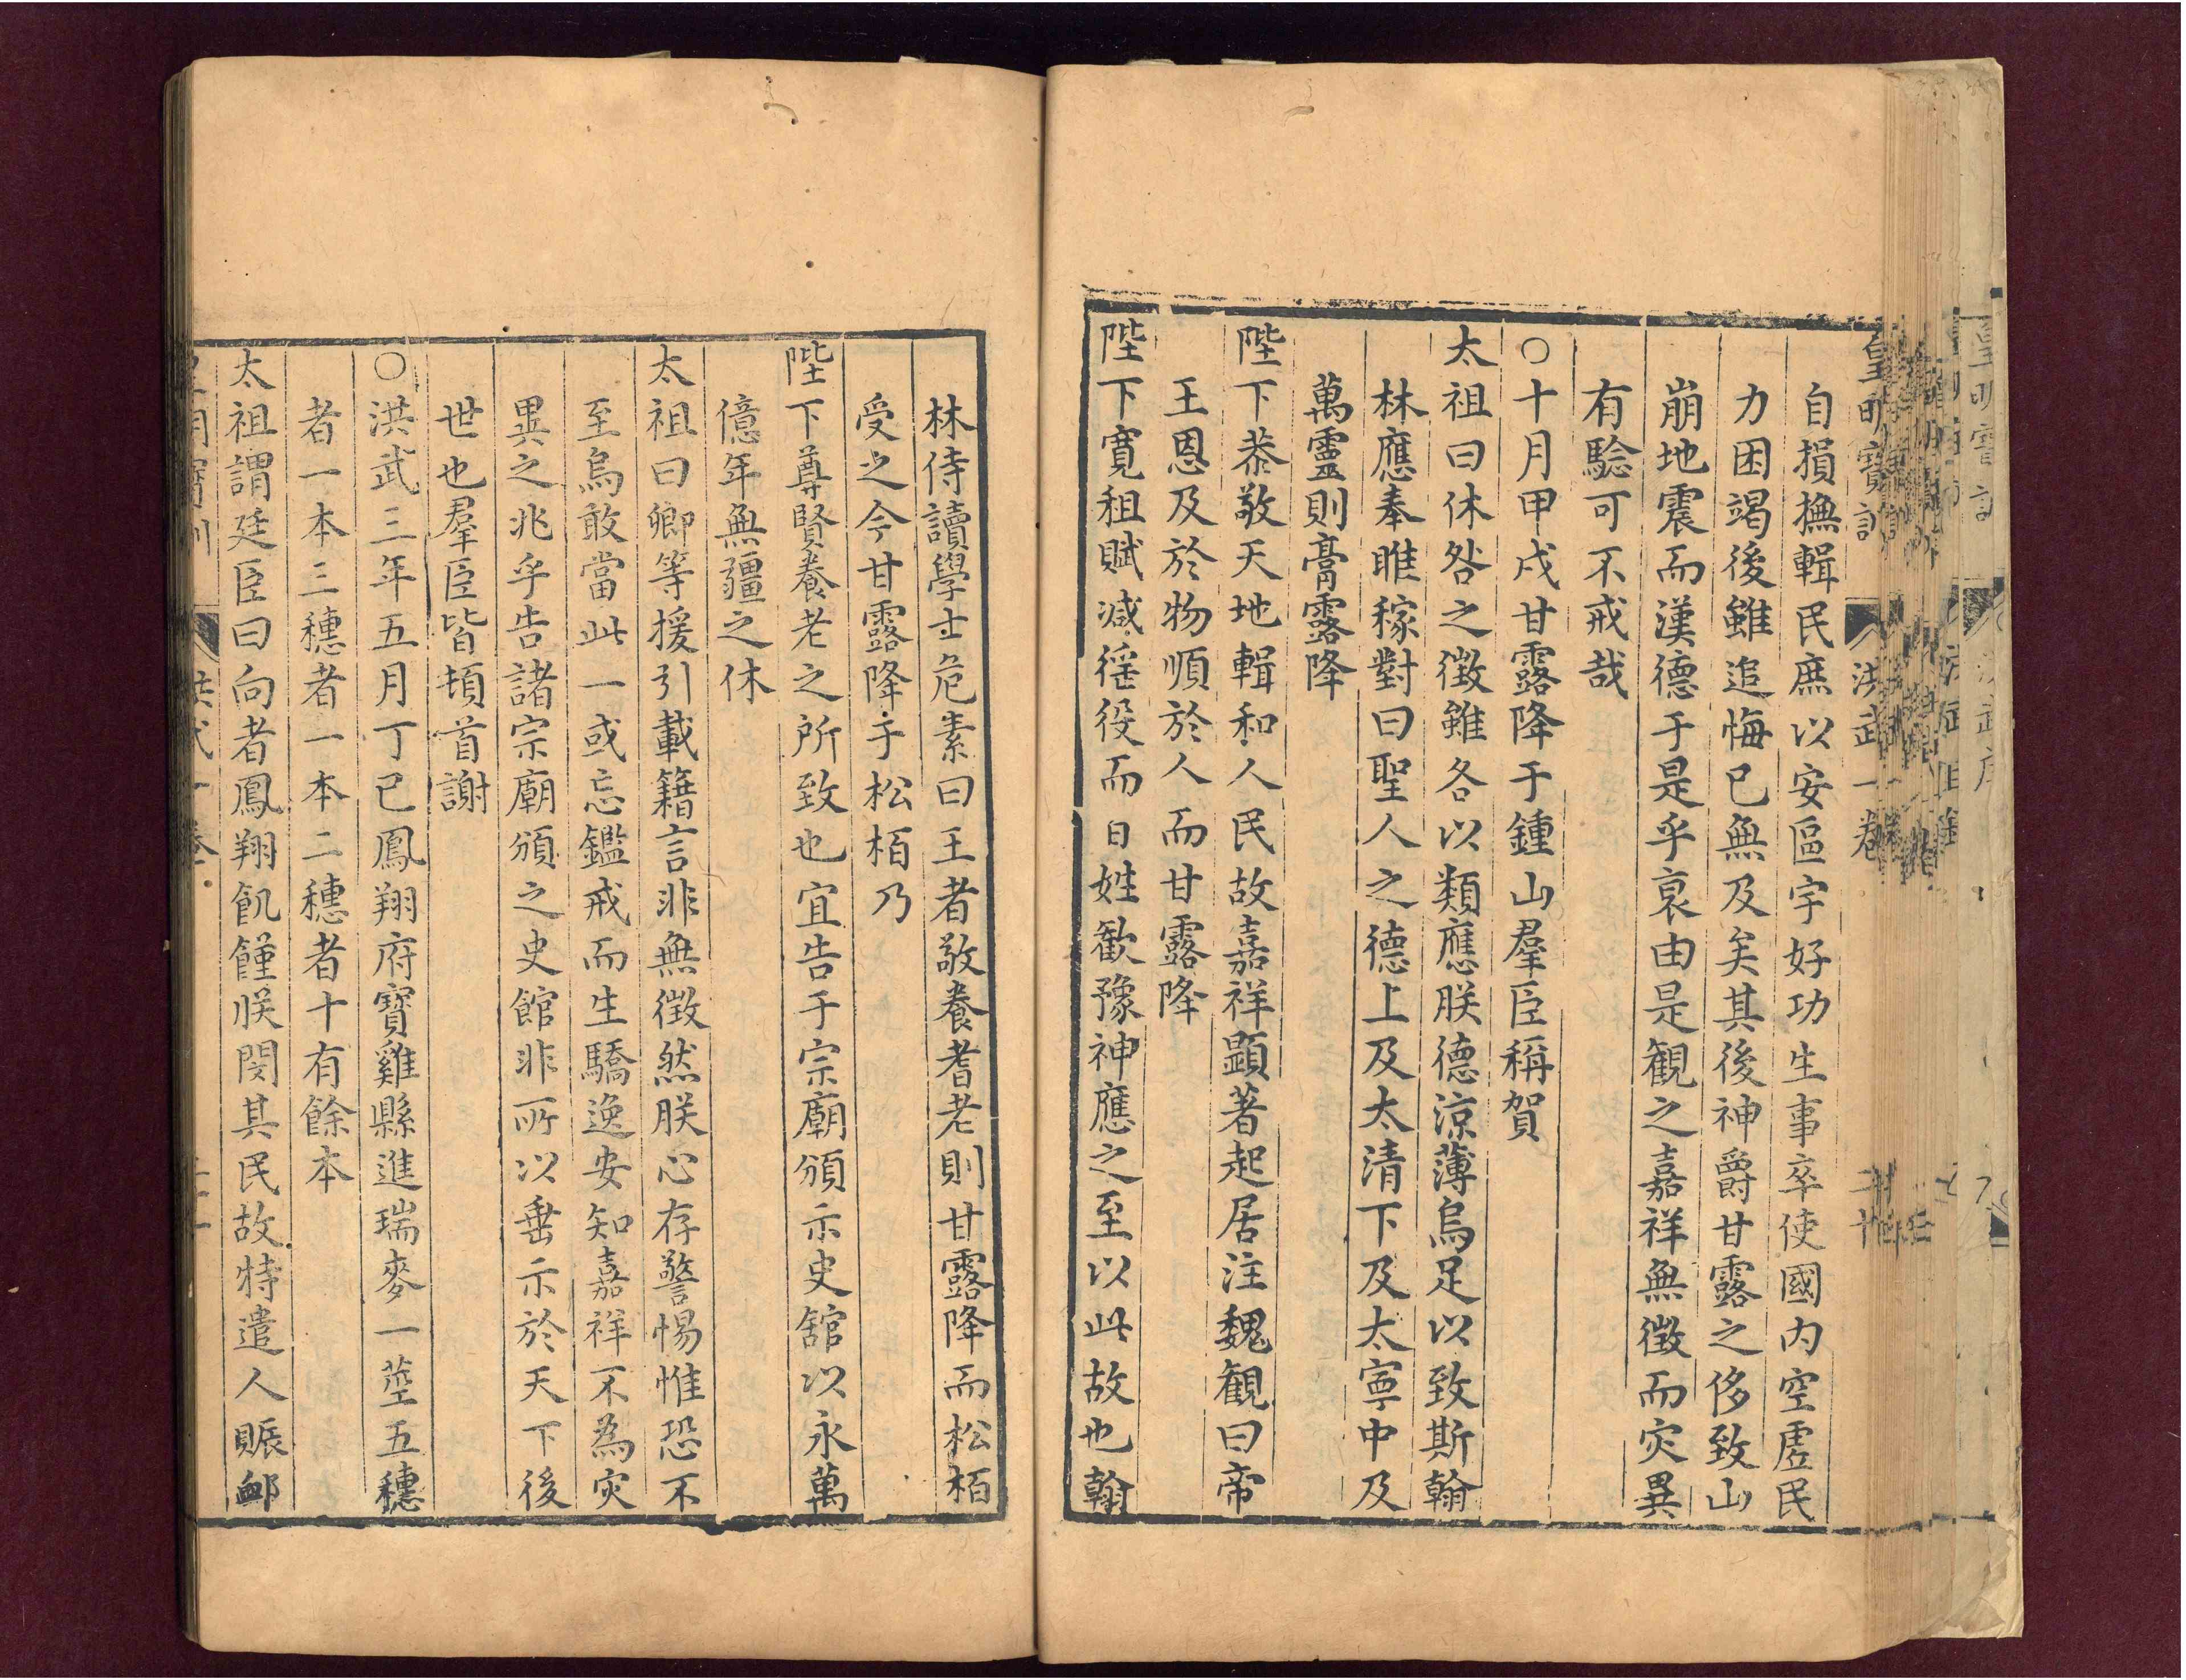 自損撫輯民庶以安區宇好功生事卒使國內空虗民
力困竭後雖追悔已無及矣其後神爵甘露之侈致山
崩地震而漢德于是乎衰由是觀之嘉祥無徵而灾異
有驗可不戒哉
○十月甲戌甘露降于鍾山羣臣稱賀
太祖曰休咎之徵雖各以類應朕德涼薄烏足以致斯翰
林應奉睢稼對曰聖人之德上及太清下及太寧中及
萬靈則膏露降
陛下恭敬天地輯和人民故嘉祥顯著起居注魏觀曰帝
王恩及於物順於人而甘露降
陛下寛租賦減徭役而百姓歡豫神應之至以此故也翰
林侍讀學士危素曰王者敬養耆老則甘露降而松栢
受之今甘露降于松栢乃
陛下尊賢養老之所致也宜告于宗廟頒示史舘以永萬
億年無疆之休
太祖曰卿等援引載籍言非無徵然朕心存警惕惟恐不
至烏敢當此一或忘鑑戒而生驕逸安知嘉祥不為灾
異之兆乎告諸宗廟頒之史館非所以垂示於天下後
世也羣臣皆頓首謝
○洪武三年五月丁巳鳳翔府寶雞縣進瑞麥一莖五穗
者一本三穗者一本二穗者十有餘本
太祖謂廷臣曰向者鳳翔飢饉朕閔其民故特遣人賑卹